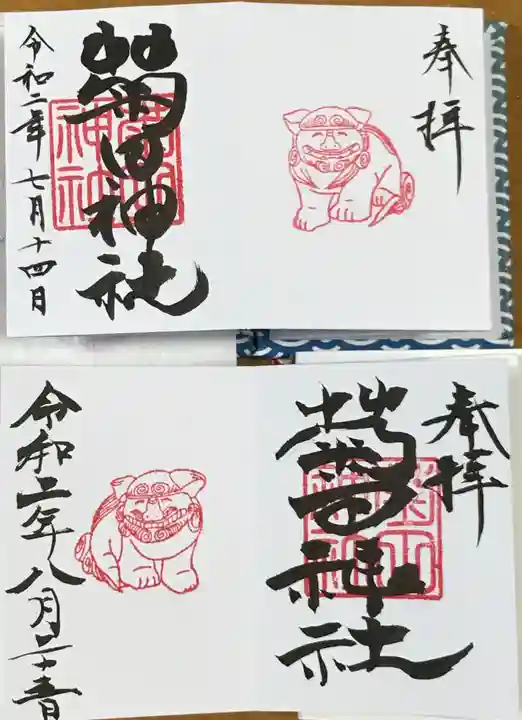 奉拝
菊田神社
令和二年七月十四日
奉拝
菊田神社
令和二年八月二十一日